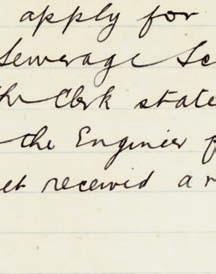 apply for
Sewerage Sc
the Clerk state
the Engineer f
et received a r